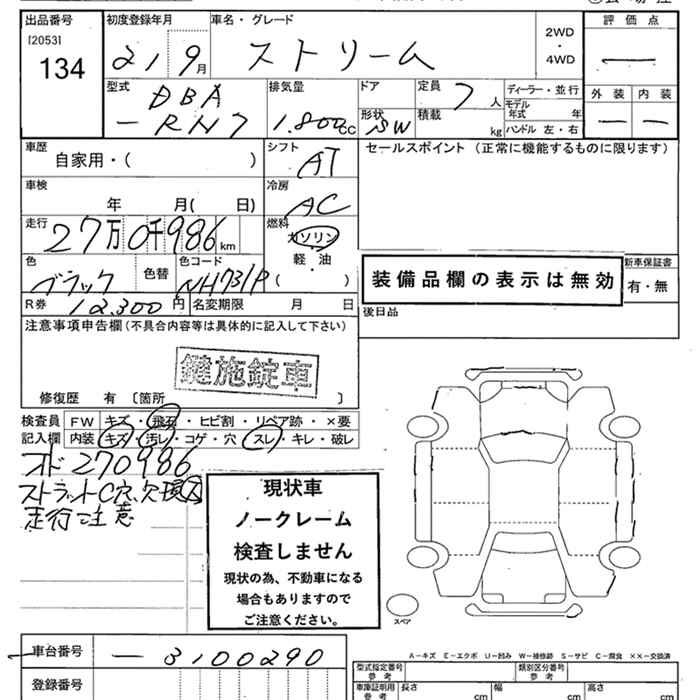 出品番号
[2053]
134
初度登録年月
21 9月
車名・グレード
ストリーム
2WD
・
4WD
評価点
外装 内装
型式
DBA
-RN7
排気量
1.800cc
ドア
形状
SW
定員
7人
積載
kg
ディーラー・並行
モデル年式 年
ハンドル 左・右
車歴
自家用・( )
シフト
AT
セールスポイント (正常に機能するものに限ります)
車検
年 月( 日)
冷房
AC
走行
27万0千986km
燃料
ガソリン
・
軽油
( )
色
ブラック
色替
色コード
NH731P
R券
12.300円
名変期限 月 日
装備品欄の表示は無効
新車保証書
有・無
後日品
注意事項申告欄(不具合内容等は具体的に記入して下さい)
鍵施錠車
修復歴 有 〔箇所 〕
検査員
記入欄
FW キズ・飛石・ヒビ割・リペア跡・×要
内装 キズ・汚レ・コゲ・穴・スレ・キレ・破レ
オド270986
ストラットC穴、欠
走行注意
現状車
ノークレーム
検査しません
現状の為、不動車になる
場合もありますので
ご注意ください。
スペア
A-キズ E-エクボ U-凹み W-補修跡 S-サビ C-腐食 ××-交換済
車台番号
-3100290
登録番号
型式指定番号
参考
類別区分番号
参考
車庫証明用
参考
長さ cm
幅 cm
高さ cm